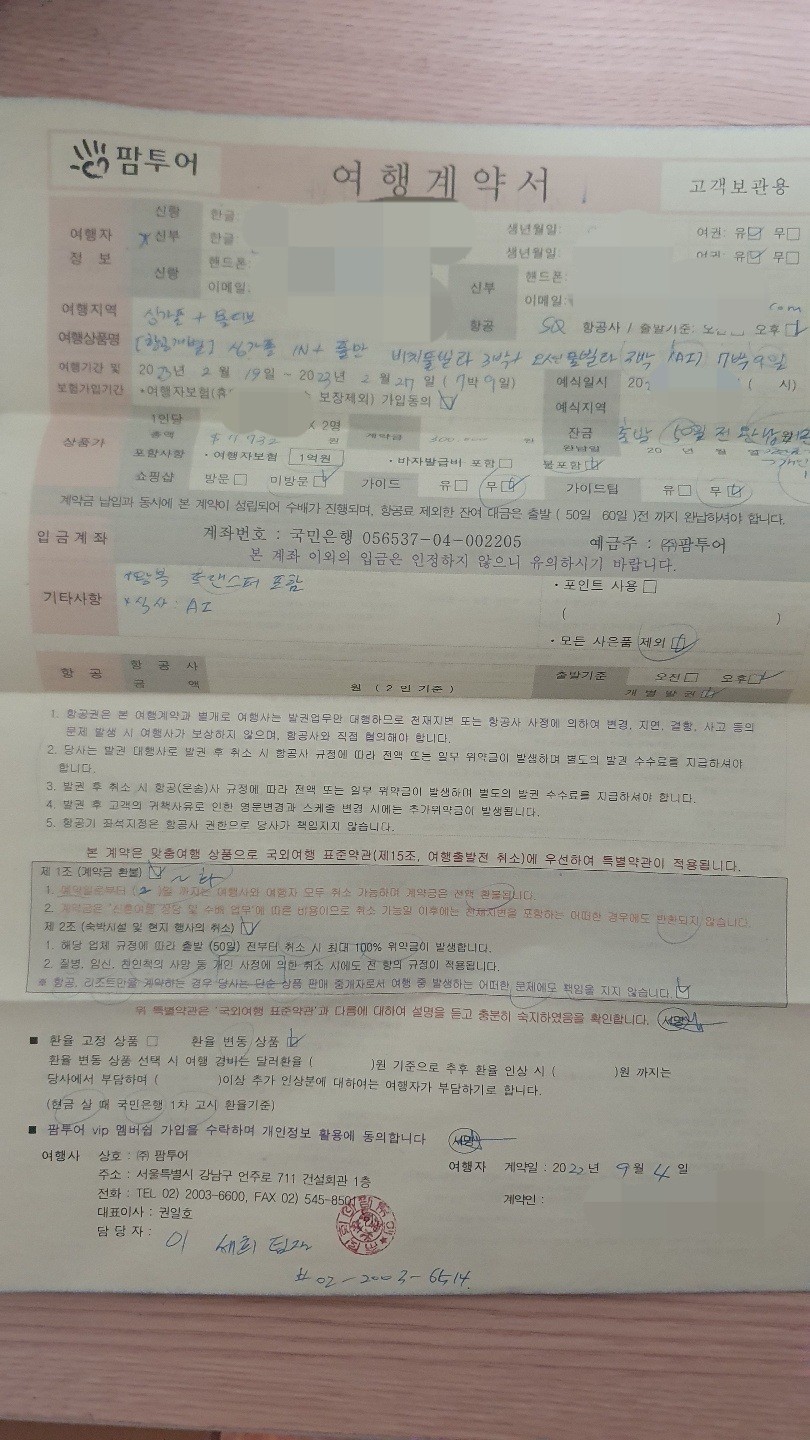 팜투어
여행계약서
고객보관용
여행자 정보
신랑 한글: 생년월일: 여권: 유☑ 무☐
신부 한글 생년월일: 여권: 유☑ 무☐
신랑 핸드폰: 신부 핸드폰:
이메일: 이메일:
com
여행지역 싱가폴 + 몰디브 항공 SQ 항공사 / 출발기준: 오후☑
여행상품명 싱가폴 IN+ 풀만 비치풀빌라 3박+ (AI) 7박9일
여행기간 및 보험가입기간 2023년 2월 19일 ~ 2023년 2월 27일 (7박 9일) 예식일시 20 ( 시)
•여행자보험( 보장제외) 가입동의 ☑ 예식지역
상품가 1인당 총액 원 X 2명 계약금 원 잔금 출발 50일 전
완납일 20 년 월
포함사항 •여행자보험 1억원 •바자발급비 포함☐ 불포함☑
쇼핑샵 방문☐ 미방문☑ 가이드 유☐ 무☑ 가이드팁 유☐ 무☑
계약금 납입과 동시에 본 계약이 성립되어 수배가 진행되며, 항공료 제외한 잔여 대금은 출발 ( 50일 60일 )전 까지 완납하셔야 합니다.
입금계좌 계좌번호 : 국민은행 056537-04-002205 예금주 : ㈜팜투어
본 계좌 이외의 입금은 인정하지 않으니 유의하시기 바랍니다.
기타사항 *왕복 트랜스퍼 포함
*식사: AI
•포인트 사용☐
( )
•모든 사은품 제외☑
항공 항공사 금액 원 (2인기준) 출발기준 오전☐ 오후☑
개별발권☑
1. 항공권은 본 여행계약과 별개로 여행사는 발권업무만 대행하므로 천재지변 또는 항공사 사정에 의하여 변경, 지연, 결항, 사고 등의
문제 발생 시 여행사가 보상하지 않으며, 항공사와 직접 협의해야 합니다.
2. 당사는 발권 대행사로 발권 후 취소 시 항공사 규정에 따라 전액 또는 일부 위약금이 발생하며 별도의 발권 수수료를 지급하셔야
합니다.
3. 발권 후 취소 시 항공(운송)사 규정에 따라 전액 또는 일부 위약금이 발생하며 별도의 발권 수수료를 지급하셔야 합니다.
4. 발권 후 고객의 귀책사유로 인한 영문변경과 스케줄 변경 시에는 추가위약금이 발생됩니다.
5. 항공기 좌석지정은 항공사 권한으로 당사가 책임지지 않습니다.
본 계약은 맞춤여행 상품으로 국외여행 표준약관(제15조, 여행출발전 취소)에 우선하여 특별약관이 적용됩니다.
제 1조 (계약금 환불) ☑ ~화
1. 계약일로부터 ( 2 )일 까지는 여행사와 여행자 모두 취소 가능하며 계약금은 전액 환불됩니다.
2. 계약금은 '신혼여행 상담 및 수배 업무'에 따른 비용이므로 취소 가능일 이후에는 천재지변을 포함하는 어떠한 경우에도 반환되지 않습니다.
제 2조 (숙박시설 및 현지 행사의 취소) ☑
1. 해당 업체 규정에 따라 출발 (50일) 전부터 취소 시 최대 100% 위약금이 발생합니다.
2. 질병, 임신, 친인척의 사망 등 개인 사정에 의한 취소 시에도 전 항의 규정이 적용됩니다.
※ 항공, 리조트만을 계약하는 경우 당사는 단순 상품 판매 중개자로서 여행 중 발생하는 어떠한 문제에도 책임을 지지 않습니다.☑
위 특별약관은 '국외여행 표준약관'과 다름에 대하여 설명을 듣고 충분히 숙지하였음을 확인합니다. (서명)
■ 환율 고정 상품 ☐ 환율 변동 상품 ☑
환율 변동 상품 선택 시 여행 경비는 달러환율 ( )원 기준으로 추후 환율 인상 시 ( )원 까지는
당사에서 부담하며 ( )이상 추가 인상분에 대하여는 여행자가 부담하기로 합니다.
(현금 살 때 국민은행 1차 고시 환율기준)
■ 팜투어 vip 멤버쉽 가입을 수락하며 개인정보 활용에 동의합니다 (서명)
여행사 상호 : ㈜ 팜투어 여행자 계약일 : 2022년 9월 4일
주소 : 서울특별시 강남구 언주로 711 건설회관 1층
전화 : TEL 02) 2003-6600, FAX 02) 545-850
대표이사 : 권일호 계약인 :
담 당 자 : 이 세희 팀장
# 02-2003-6514